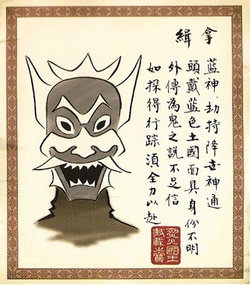 拿緝
藍神劫持降世神通
頭戴藍色土國面具身份不明
外傳為鬼之說不足信
如探得行踪須全力以赴
烈火國王